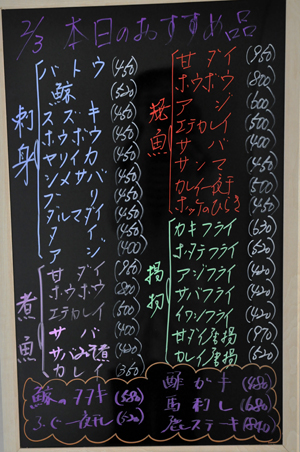 2/3 本日のおすすめ品
刺身
バトウ (450)
鯨 (520)
スズキ (450)
ホウボウ (450)
ヤリイカ (450)
シメサバ (450)
ブリ (450)
ダルマダイ (450)
タイ (450)
アジ (400)
煮魚
甘ダイ (950)
ホウボウ (800)
エテカレイ (500)
サバ (400)
サバみそ煮 (420)
カレイ (350)
焼魚
甘ダイ (950)
ホウボウ (800)
アジ (600)
エテカレイ (500)
サバ (400)
サンマ (450)
カレイ一夜干 (500)
ホッケのひらき (450)
揚物
カキフライ (520)
ホタテフライ (520)
アジフライ (450)
サバフライ (420)
イワシフライ (420)
甘ダイ唐揚 (970)
カレイ唐揚 (520)
鯨のタタキ (580)
ふぐ一夜干し (520)
酢ガキ (450)
馬刺し (680)
鹿ステーキ (880)